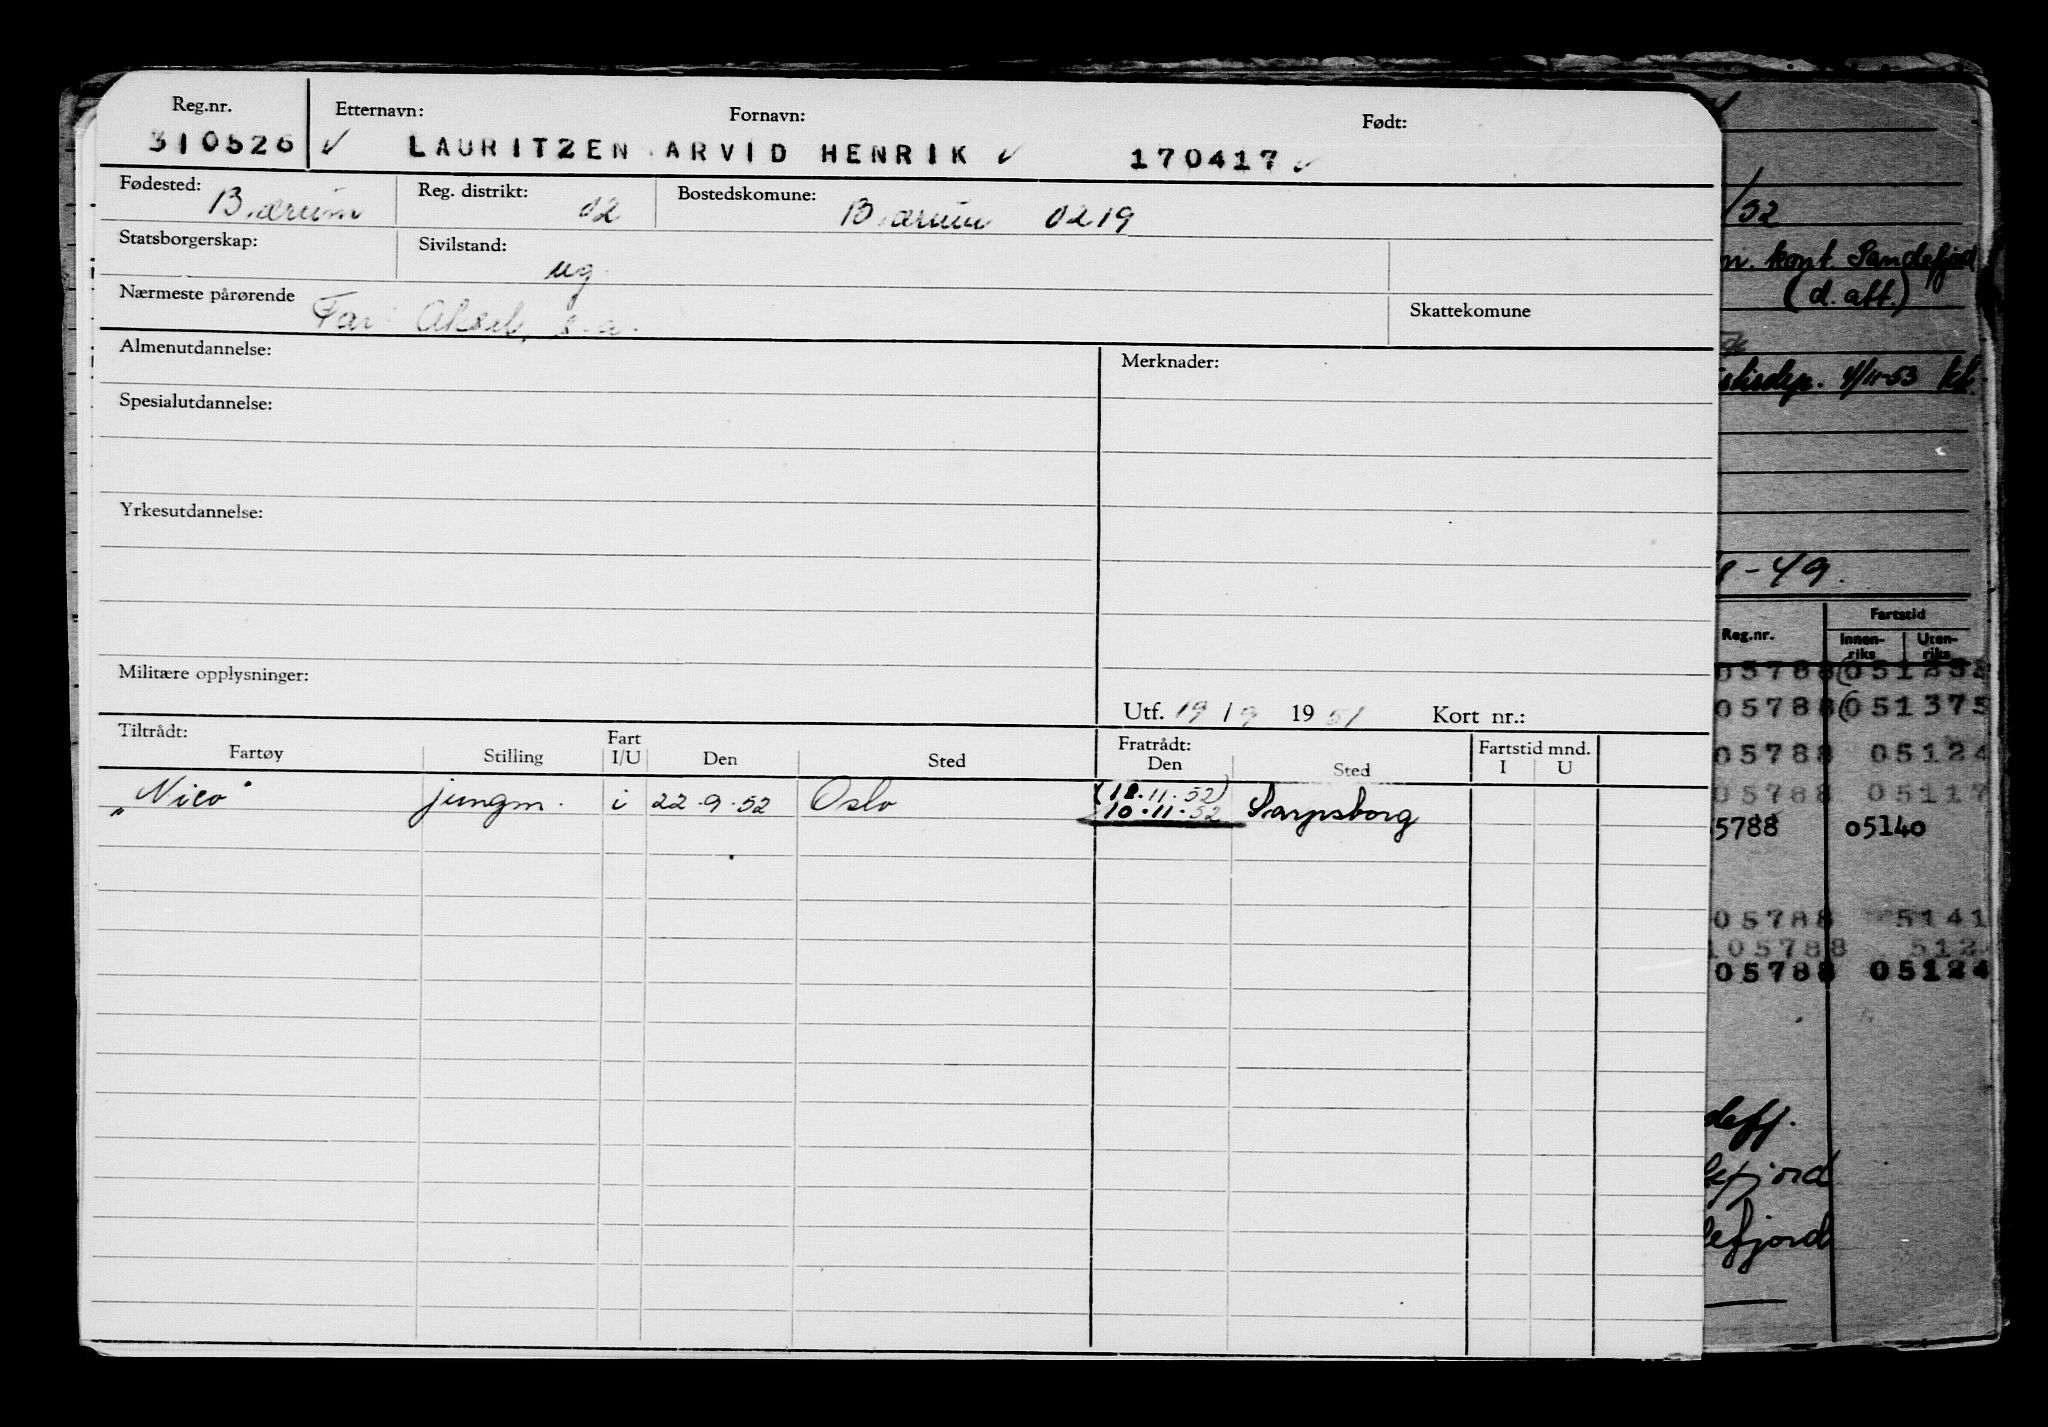 Reg.nr. Etternavn: Fornavn: Født:
310526 ✓ LAURITZEN ARVID HENRIK ✓ 170417 ✓
Fødested: Bærum Reg. distrikt: 02 Bostedskomune: Bærum 0219
Statsborgerskap: Sivilstand: ug.
Nærmeste pårørende Far: Aksel, s.a. Skattekomune
Almenutdannelse: Merknader:
Spesialutdannelse:
Yrkesutdannelse:
Militære opplysninger:
Utf. 19/9 1951 Kort nr.:
Tiltrådt: Fart Fratrådt: Fartstid mnd.
Fartøy Stilling I/U Den Sted Den Sted I U
"Nico" jungm. i 22-9-52 Oslo (18.11.52)
10.11.52 Sarpsborg
/52
kont. Sandefjord
(d. aft.)
4/11-53
8-49.
Reg.nr. Fartstid
Innen-riks Uten-riks
05788 (05123
05788 (051375
05788 05124
05788 05117
5788 05140
05788 5141
105788 512
05788 05124
deff.
efjord
efjord